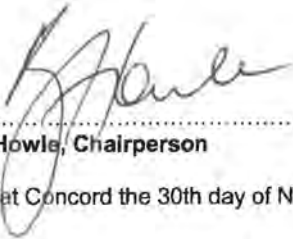 Howle, Chairperson
at Concord the 30th day of N